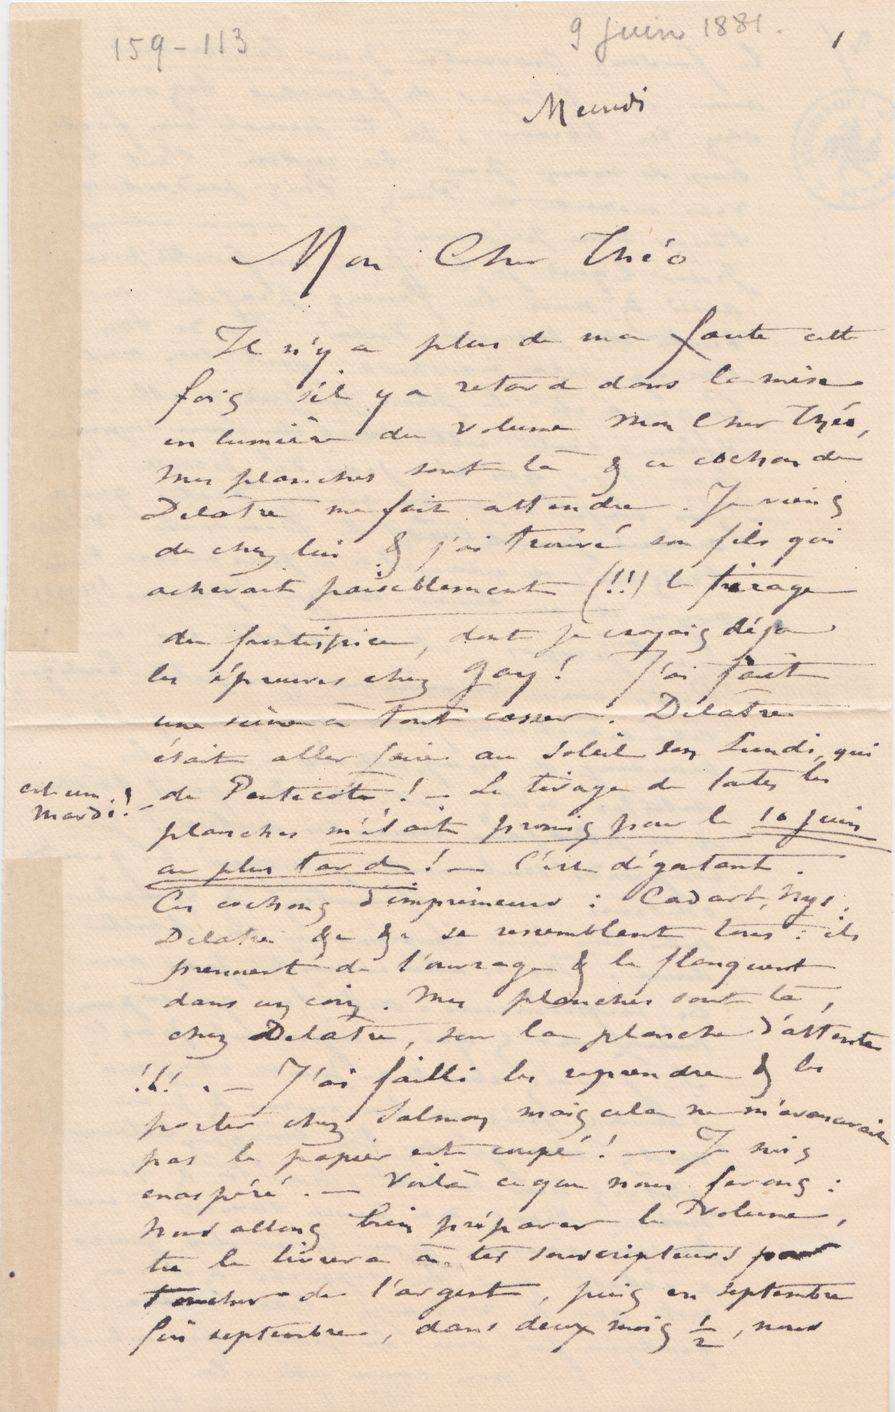 159-113
9 juin 1881.
1
Mardi
Mon Cher Théo
Il n'y a plus de ma faute cette
fois s'il y a retard dans la mise
en lumière du volume mon Cher Théo,
mes planches sont là & ce cochon de
Delâtre me fait attendre. Je viens
de chez lui & j'ai trouvé son fils qui
achevait paisiblement (!!) le tirage
du frontispice, dont je croyais déjà
les épreuves chez Gay! J'ai fait
une scène à tout casser. Delâtre
était aller faire au Soleil son Lundi, qui
est un
mardi!
de Penticôte! — Le tirage de toutes les
planches m'était promis pour le 10 juin
au plus tard! — C'est dégoutant.
Ces cochons d'imprimeurs : Cadart, Nys,
Delâtre &c &c se ressemblent tous : ils
prennent de l'ouvrage & le flanquent
dans un coin. Mes planches sont là,
chez Delâtre, sur la planche d'attente
!!! . — J'ai failli les reprendre & les
porter chez Salmon mais cela ne m'avancerait
pas le papier est coupé! — Je suis
exaspéré. — Voilà ce que nous ferons :
nous allons bien préparer le volume,
tu le livrera à tes souscripteurs pour
toucher de l'argent, puis en septembre
fin septembre, dans deux mois ½, nous